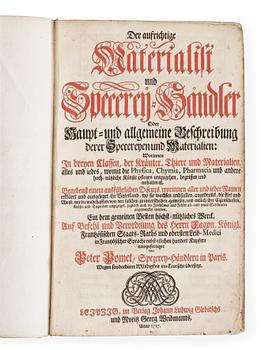 Der aufrichtige
Materialist
und
Specerey-Händler
Oder
Haupt- und allgemeine Beschreibung
derer Specereyen und Materialien:
Worinnen
In dreyen Classen, der Kräuter, Thiere und Materialien,
alles und iedes, womit die Physica, Chymia, Pharmacia und andere
hoch-nützliche Künste pflegen umzugehen, begriffen und
enthalten ist,
Ein dem gemeinen Besten höchst-nützliches Werck,
Auf Befehl und Verordnung des Herrn Fagon, Königl.
Frantzösischen Staats-Raths und obersten Leib-Medici
in Frantzösischer Sprache mit etlichen hundert Kupffern
ausgefertiget
von
Peter Pomet, Specerey-Händlern in Paris.
Wegen sonderbarer Würdigkeit ins Teutsche übersetzt.
LEIPZIG, im Verlag Johann Ludwig Gleditschs
und Moritz Georg Weidmanns,
Anno 1717.